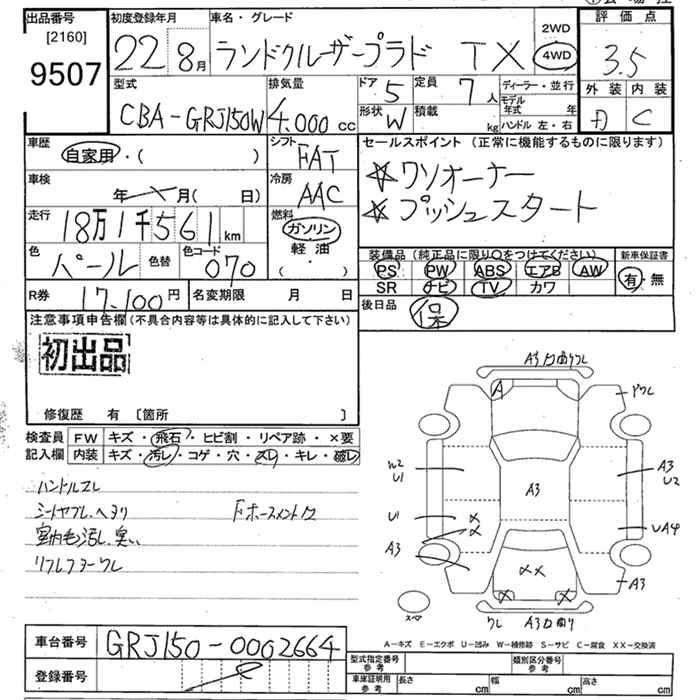 出品番号
[2160]
9507
初度登録年月
22 8月
車名・グレード
ランドクルーザープラド TX
2WD
4WD
評価点
3.5
型式
CBA-GRJ150W
排気量
4.000 cc
ドア 5
定員 7 人
形状 W
積載 kg
ディーラー・並行
モデル年式 年
ハンドル 左・右
外装 内装
C
車歴
自家用・( )
シフト
FAT
セールスポイント (正常に機能するものに限ります)
☆ワンオーナー
☆プッシュスタート
車検
年 月( 日)
冷房
AAC
走行
18万1千561 km
燃料
ガソリン
軽油
・( )
色
パール
色替
色コード
070
装備品 (純正品に限り○をつけてください)
PS PW ABS エアB AW
SR ナビ TV カワ
新車保証書
有・無
R券 17.100円
名変期限 月 日
後日品
保
注意事項申告欄(不具合内容等は具体的に記入して下さい)
初出品
修復歴 有 [箇所 ]
検査員記入欄
FW キズ・飛石・ヒビ割・リペア跡・×要
内装 キズ・汚レ・コゲ・穴・スレ・キレ・破レ
ハンドルスレ
シートヤブレ、ヘタリ
室内毛汚レ、臭い
A
A3
W2
U1
A3
U2
U1
×
×
UA4
A3
A3
××
×
×
スペア
A-キズ E-エクボ U-凹み W-補修跡 S-サビ C-腐食 XX-交換済
車台番号 GRJ150-0002664
登録番号
型式指定番号 参考
類別区分番号 参考
車庫証明用 参考
長さ cm
幅 cm
高さ cm